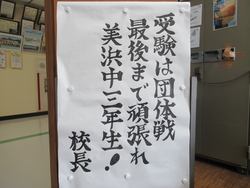 受験は団体戦
最後まで頑張れ
美浜中三年生！
校長